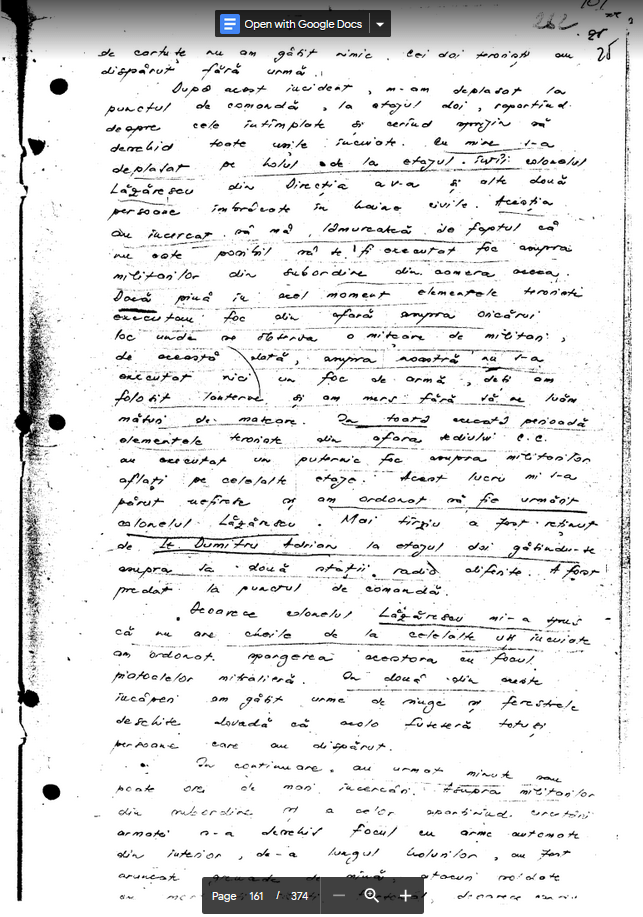 Open with Google Docs
262
25
de cartușe nu am găsit nimic. Cei doi teroriști au
dispărut fără urmă.
După acest incident, m-am deplasat la
punctul de comandă, la etajul doi, raportînd
despre cele întîmplate și cerînd sprijin să
deschid toate ușile încuiate. Cu mine s-a
deplasat pe holul de la etajul întîi colonelul
Lăzărescu din Direcția a V-a și alte două
persoane îmbrăcate în haine civile. Aceștia
au încercat să mă lămurească de faptul că
nu este posibil să se fi executat foc asupra
militarilor din subordine din camera aceea.
Dacă pînă în acel moment elementele teroriste
executau foc din afară asupra oricărui
loc unde se observa o mișcare de militari,
de această dată, asupra noastră nu s-a
executat nici un foc de armă, deși am
folosit lanterne și am mers fără să ne luăm
măsuri de mascare. În toată această perioadă
elementele teroriste din afara sediului C.C.
au executat un puternic foc asupra militarilor
aflați pe celelalte etaje. Acest lucru mi s-a
părut nefiresc și am ordonat să fie urmărit
colonelul Lăzărescu. Mai tîrziu a fost reținut
de Lt. Dumitru Adrian la etajul doi găsindu-se
asupra sa două stații radio diferite. A fost
predat la punctul de comandă.
Deoarece colonelul Lăzărescu mi-a spus
că nu are cheile de la celelalte uși încuiate
am ordonat spargerea acestora cu focul
pistoalelor mitralieră. În două din aceste
încăperi am găsit urme de sînge și ferestrele
deschise dovadă că acolo fuseseră totuși
persoane care au dispărut.
În continuare, au urmat minute sau
poate ore de mari încercări. Asupra militarilor
din subordine și a celor aparținînd
armatei s-a deschis focul cu arme automate
din interior, de-a lungul holurilor, au fost
aruncate grenade de mînă, atacuri
au
Page 161 / 374